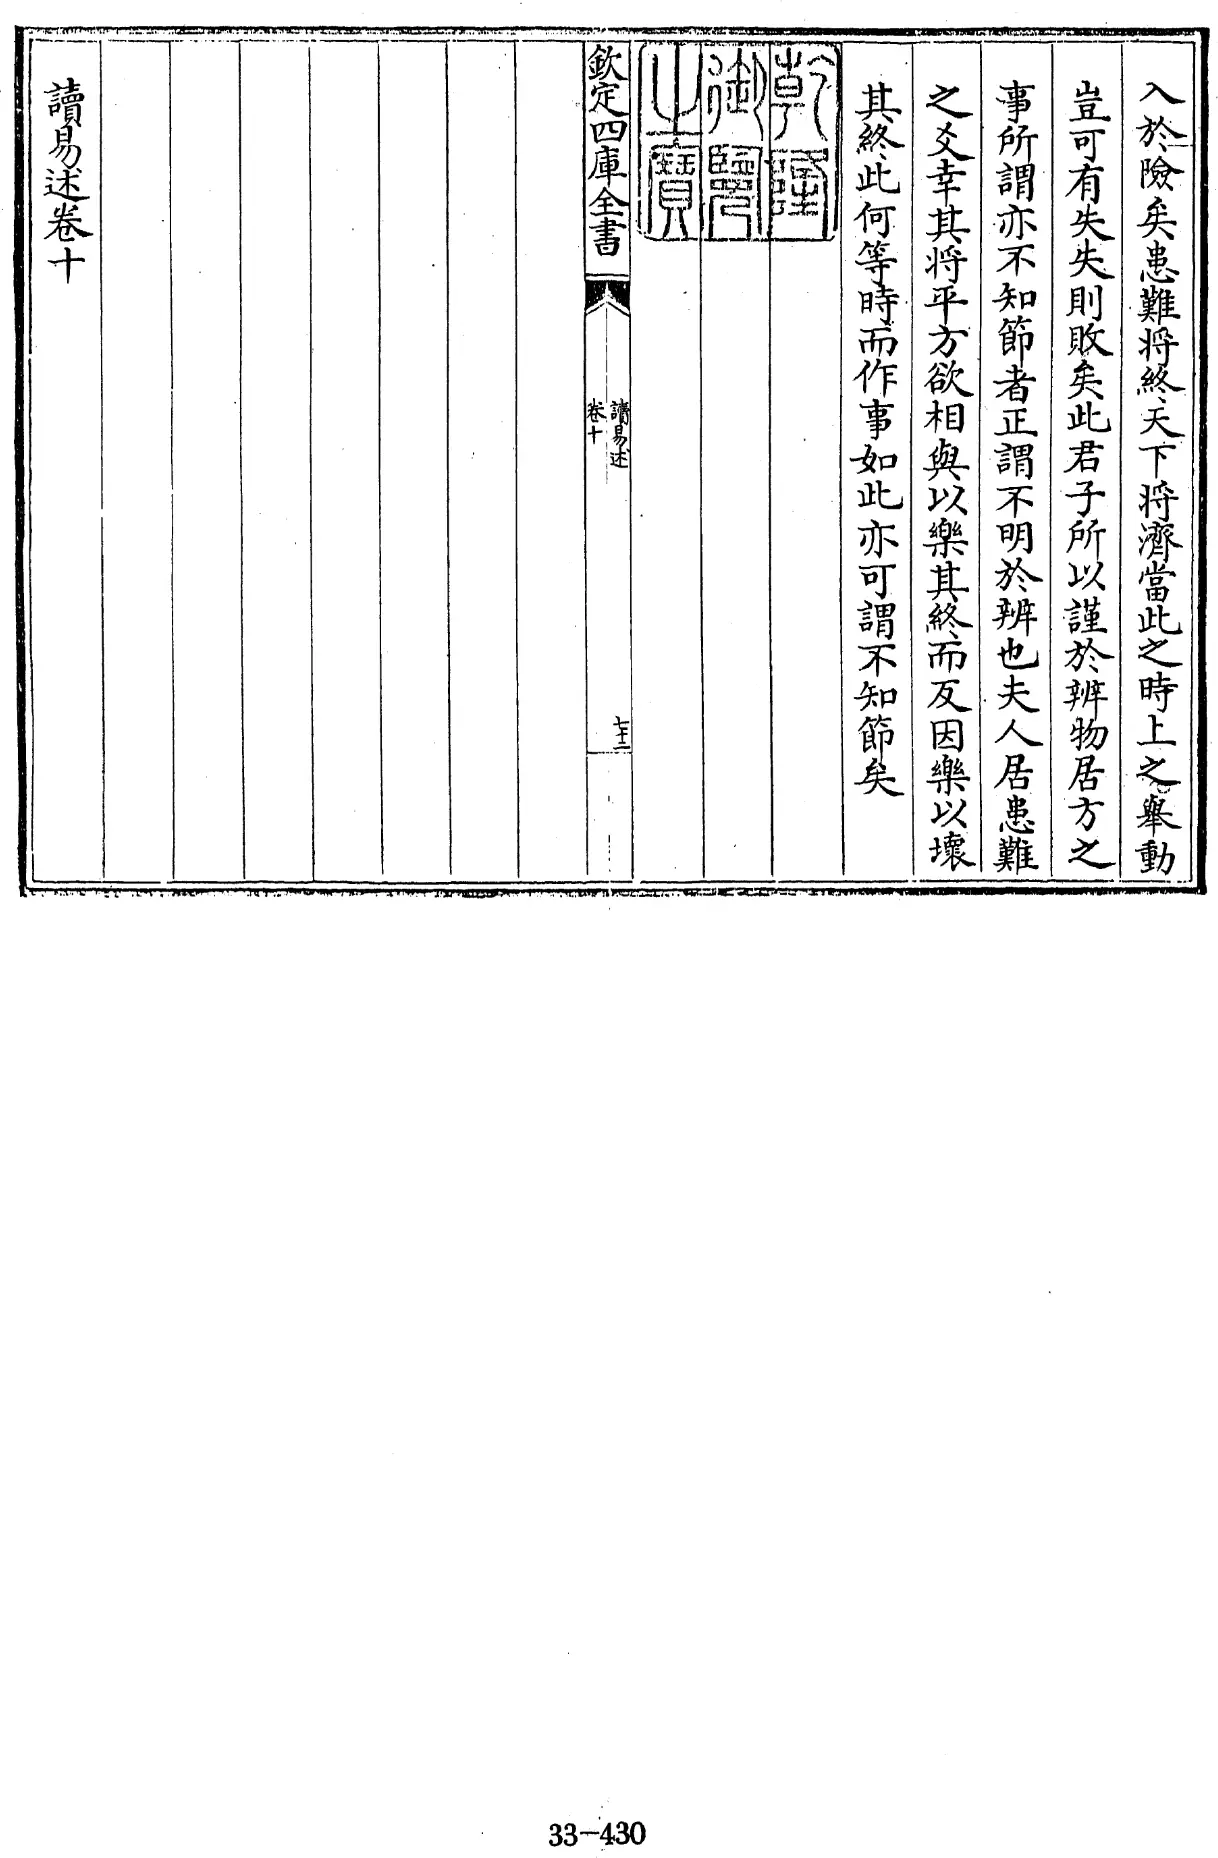 入於險矣患難将終天下将濟當此之時上之舉動
豈可有失失則敗矣此君子所以謹於辨物居方之
事所謂亦不知節者正謂不明於辨也夫人居患難
之爻幸其将平方欲相與以樂其終而反因樂以壞
其終此何等時而作事如此亦可謂不知節矣
乾隆
御覽
之寶
欽定四庫全書
讀易述
卷十
七十二
讀易述卷十
33-430